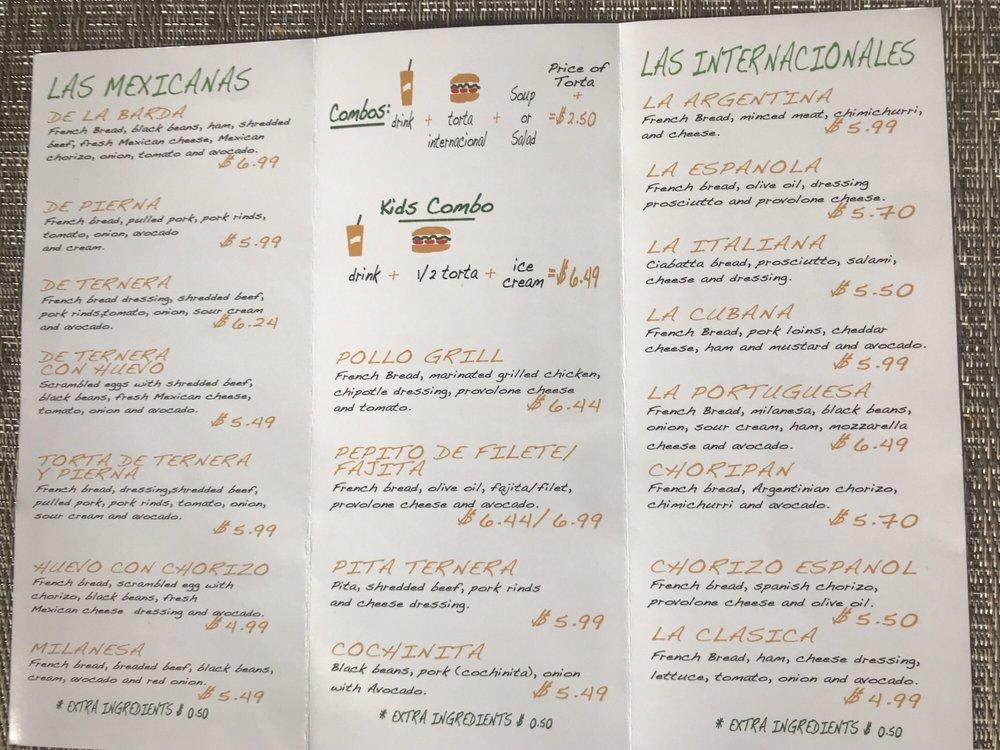 LAS MEXICANAS
DE LA BARDA
French Bread, black beans, ham, shredded
beef, fresh Mexican cheese, Mexican
chorizo, onion, tomato and avocado.
$ 6.99
DE PIERNA
French bread, pulled pork, pork rinds,
tomato, onion, avocado
and cream.
$ 5.99
DE TERNERA
French bread dressing, shredded beef,
pork rinds,tomato, onion, sour cream
and avocado.
$ 6.24
DE TERNERA
CON HUEVO
Scrambled eggs with shredded beef,
black beans, fresh Mexican cheese,
tomato, onion and avocado.
$ 5.49
TORTA DE TERNERA
Y PIERNA
French bread, dressing,shredded beef,
pulled pork, pork rinds, tomato, onion,
sour cream and avocado.
$ 5.99
HUEVO CON CHORIZO
French bread, scrambled egg with
chorizo, black beans, fresh
Mexican cheese dressing and avocado.
$ 4.99
MILANESA
French bread, breaded beef, black beans,
cream, avocado and red onion.
$ 5.49
* EXTRA INGREDIENTS $ 0.50
Combos: drink + torta internacional + Soup or Salad = Price of Torta + $2.50
Kids Combo
drink + 1/2 torta + ice cream = $6.49
POLLO GRILL
French Bread, marinated grilled chicken,
chipotle dressing, provolone cheese
and tomato.
$ 6.44
PEPITO DE FILETE/
FAJITA
French bread, olive oil, fajita/filet,
provolone cheese and avocado.
$ 6.44/ 6.99
PITA TERNERA
Pita, shredded beef, pork rinds
and cheese dressing.
$ 5.99
COCHINITA
Black beans, pork (cochinita), onion
with Avocado.
$ 5.49
* EXTRA INGREDIENTS $ 0.50
LAS INTERNACIONALES
LA ARGENTINA
French Bread, minced meat, chimichurri,
and cheese.
$ 5.99
LA ESPANOLA
French bread, olive oil, dressing
prosciutto and provolone cheese.
$ 5.70
LA ITALIANA
Ciabatta bread, prosciutto, salami,
cheese and dressing.
$ 5.50
LA CUBANA
French Bread, pork loins, cheddar
cheese, ham and mustard and avocado.
$ 5.99
LA PORTUGUESA
French Bread, milanesa, black beans,
onion, sour cream, ham, mozzarella
cheese and avocado.
$ 6.49
CHORIPAN
French bread, Argentinian chorizo,
chimichurri and avocado.
$ 5.70
CHORIZO ESPANOL
French bread, spanish chorizo,
provolone cheese and olive oil.
$ 5.50
LA CLASICA
French Bread, ham, cheese dressing,
lettuce, tomato, onion and avocado.
$ 4.99
* EXTRA INGREDIENTS $ 0.50